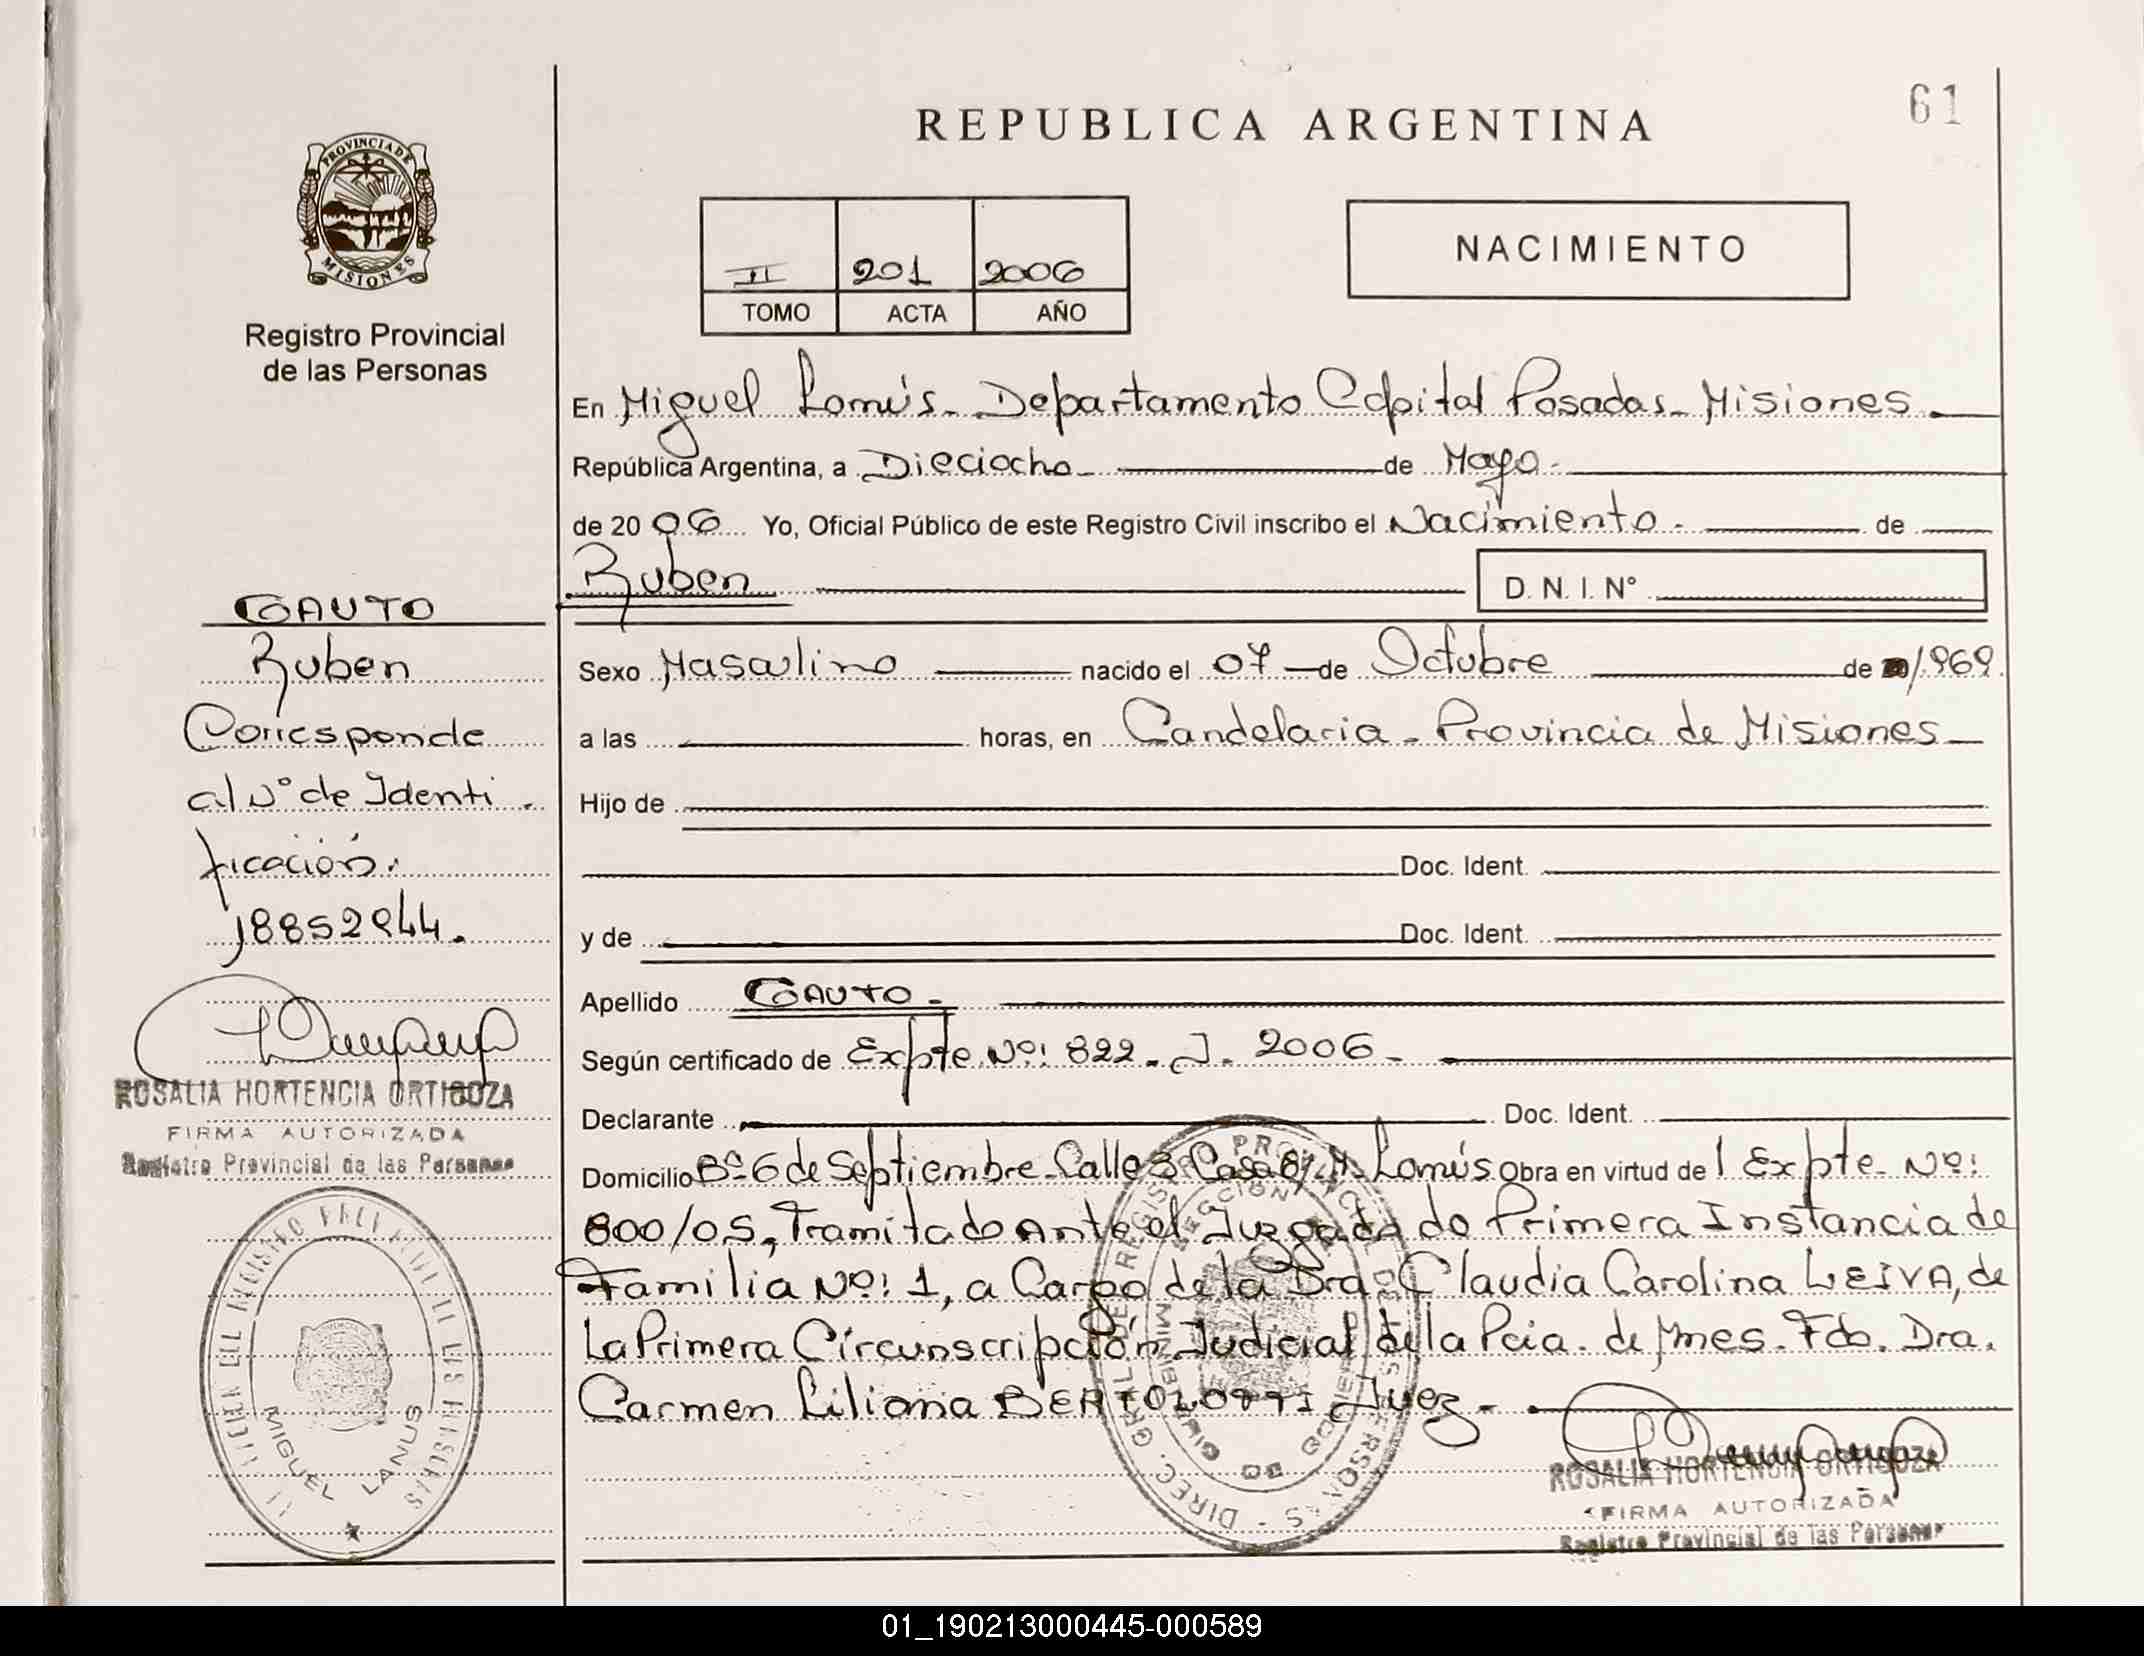 61
REPUBLICA ARGENTINA
PROVINCIA DE
MISIONES
Registro Provincial
de las Personas
II 201 2006
TOMO ACTA AÑO
NACIMIENTO
En Miguel Lanús - Departamento Capital Posadas - Misiones
República Argentina, a Dieciocho de Mayo.
de 2006 Yo, Oficial Público de este Registro Civil inscribo el Nacimiento. de
Ruben D. N. I. N°
GAUTO
Ruben
Corresponde
al N° de Identi
ficación:
18852944.
Sexo Masculino nacido el 07 de Octubre de 1969
a las horas, en Candelaria - Provincia de Misiones
Hijo de
Doc. Ident.
y de Doc. Ident.
Apellido GAUTO.
Según certificado de Expte. Nº: 822 - J - 2006 -
Declarante Doc. Ident.
Domicilio Bº 6 de Septiembre - Calle 3 Casa 61 M. Lanús Obra en virtud de l Expte. Nº:
800/05, Tramitado Ante el Juzgado de Primera Instancia de
Familia Nº: 1, a Cargo de la Dra. Claudia Carolina LEIVA, de
La Primera Circunscripción Judicial de la Pcia. de Mnes. Fdo. Dra.
Carmen Liliana Juez -
ROSALIA HORTENCIA ORTIGOZA
FIRMA AUTORIZADA
Registro Provincial de las Personas
MIGUEL LANUS
ROSALIA HORTENCIA ORTIGOZA
FIRMA AUTORIZADA
Registro Provincial de las Personas
01_190213000445-000589